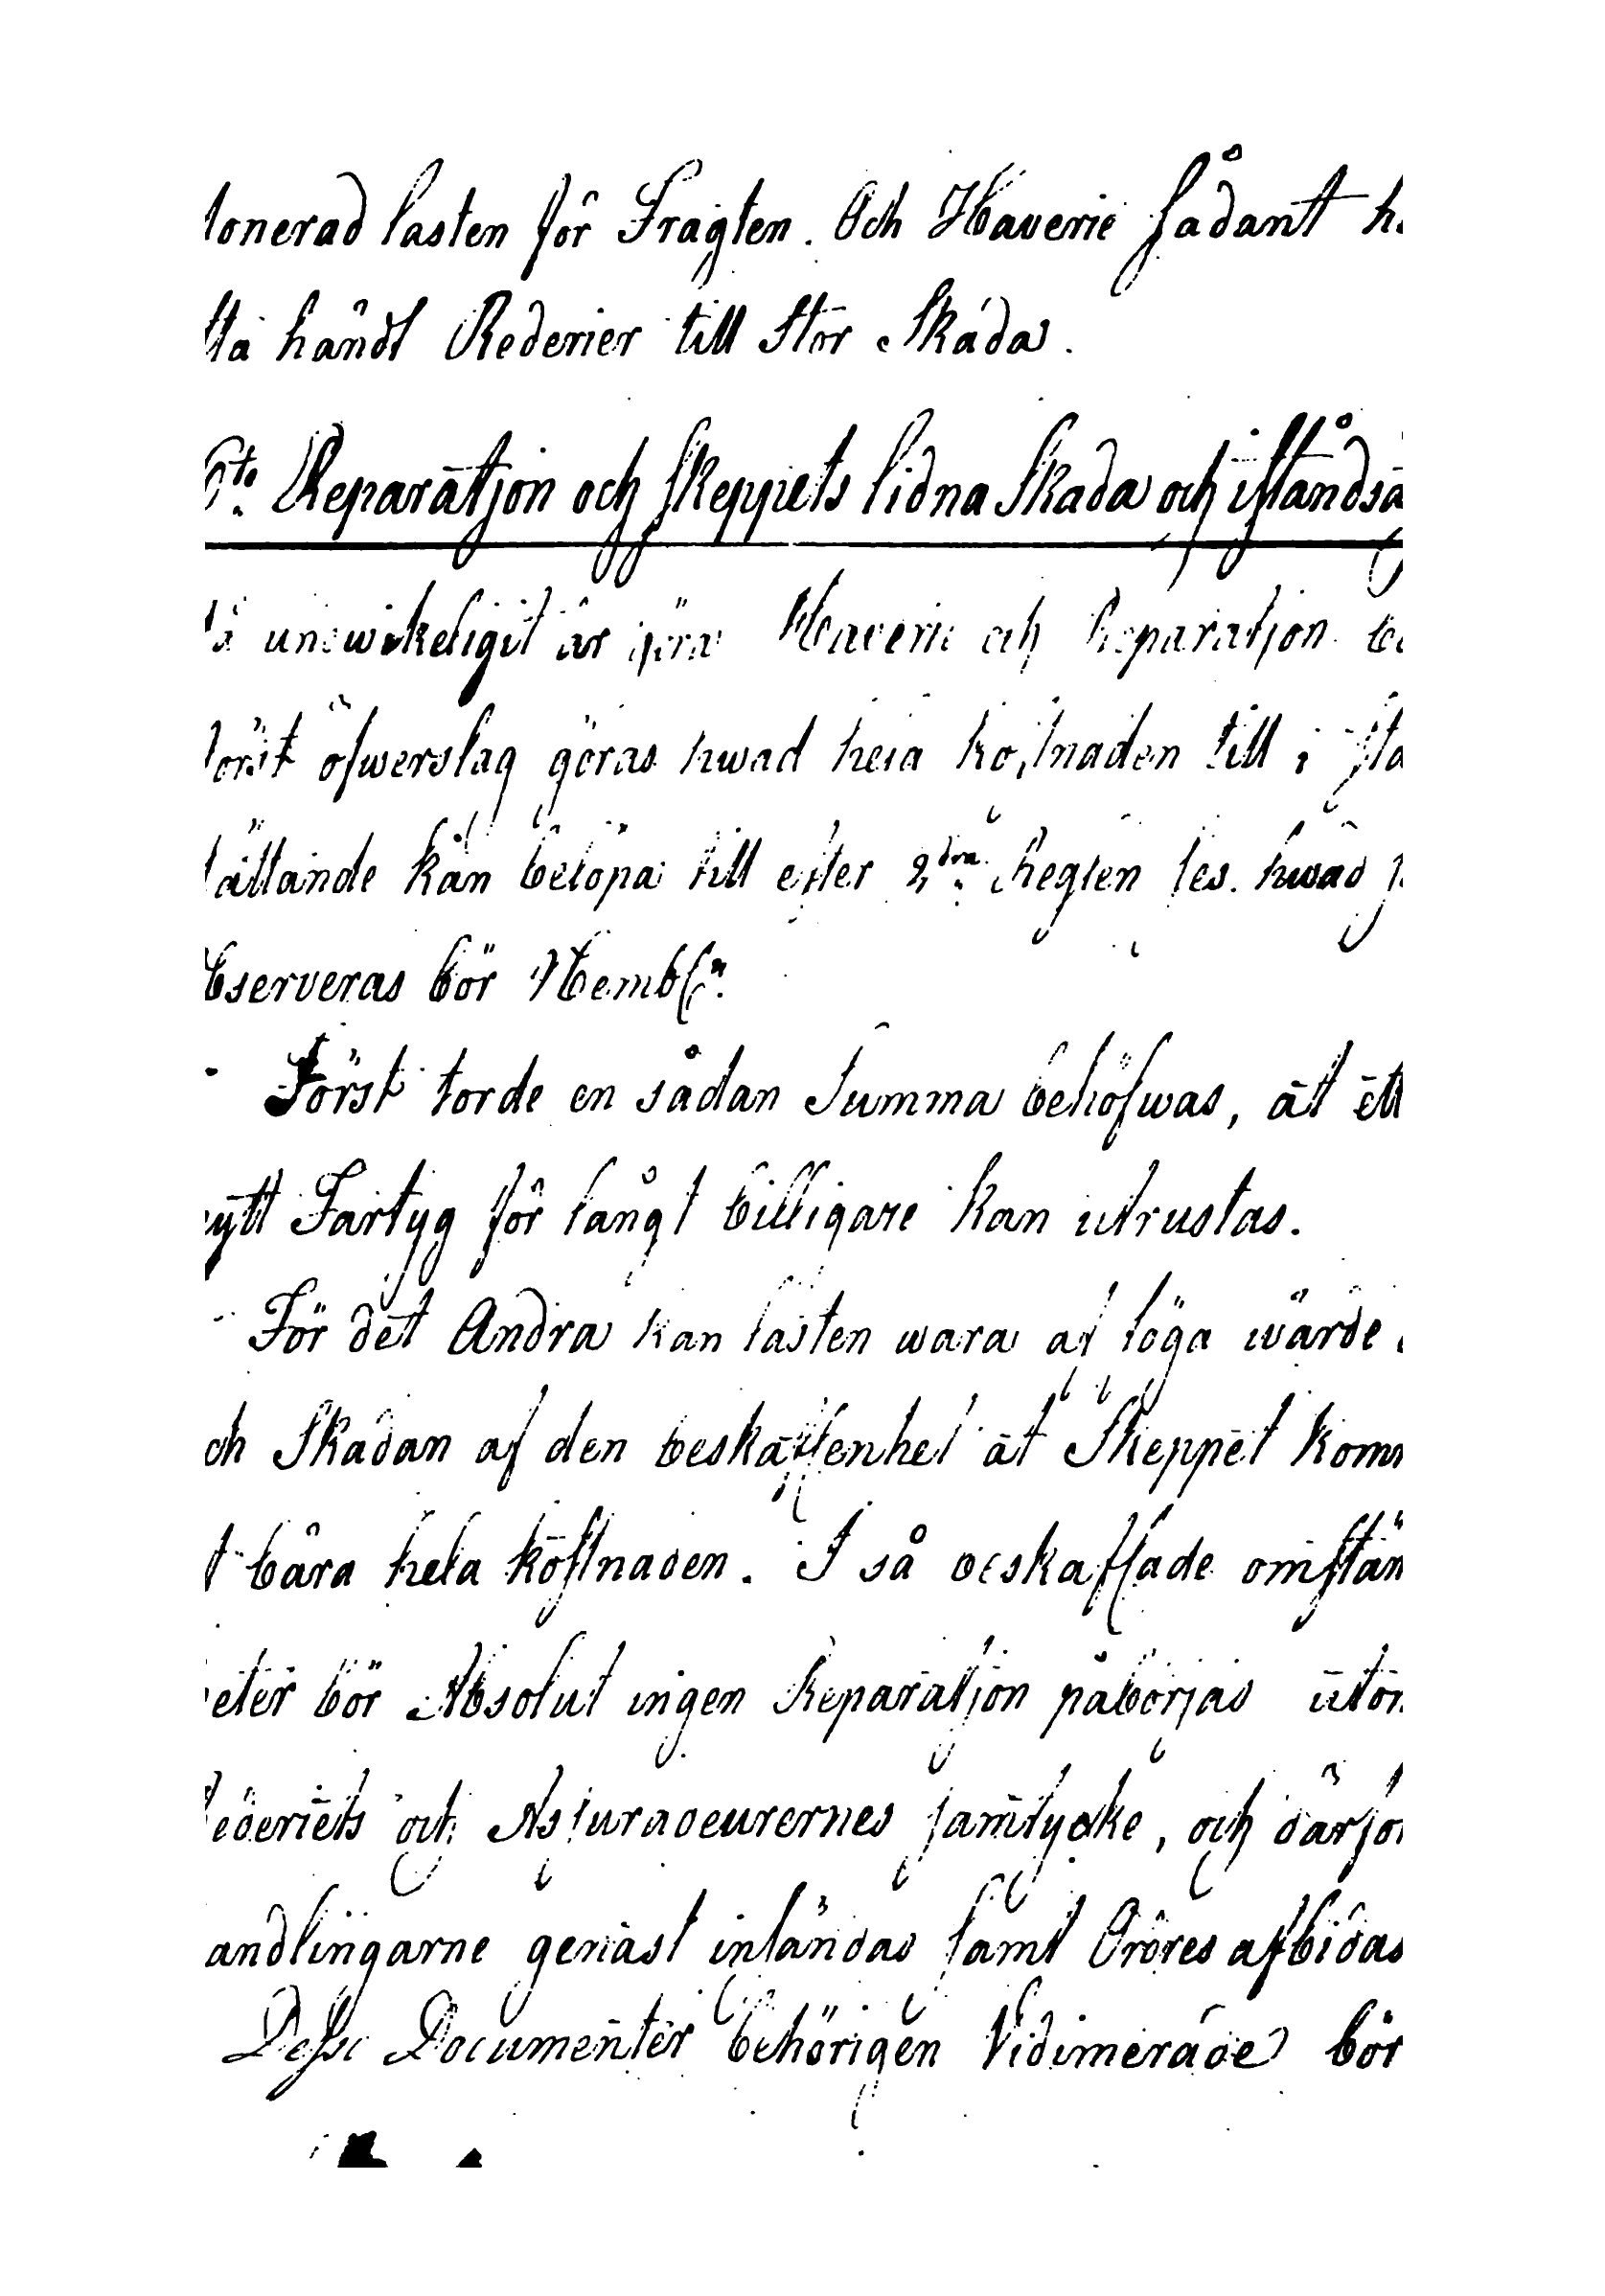 lonerad lasten för Fragten. Och Haverie sådant h
lla händt Rederier till Stor Skada.
6te Reparätjon och skeppets lidna Skada och iståndsä
unwikeligit är göra Haverie och Reparatjon be
örst öfwerslag göras hwad hela kostnaden till i sta
ättande kan belöpa till efter 2dra Reglen les. hwad
bserveras bör Hembln
Först torde en sådan Summa behöfwas, at ett
ytt Fartyg för långt billigare kan utrustas.
För det Andra kan lasten wara af låga wärde
ch Skadan af den beskaffenhet at Skeppet komm
t bära hela kostnaden. I så beskaffade omstän
eter bör Absolut ingen Reparatjon påbörjas uton
ederiets och Assuradeurernes samtycke, och därför
andlingarne genast insändas samt Ordres afbidas
Desse Documenter behörigen Vidimerade bör